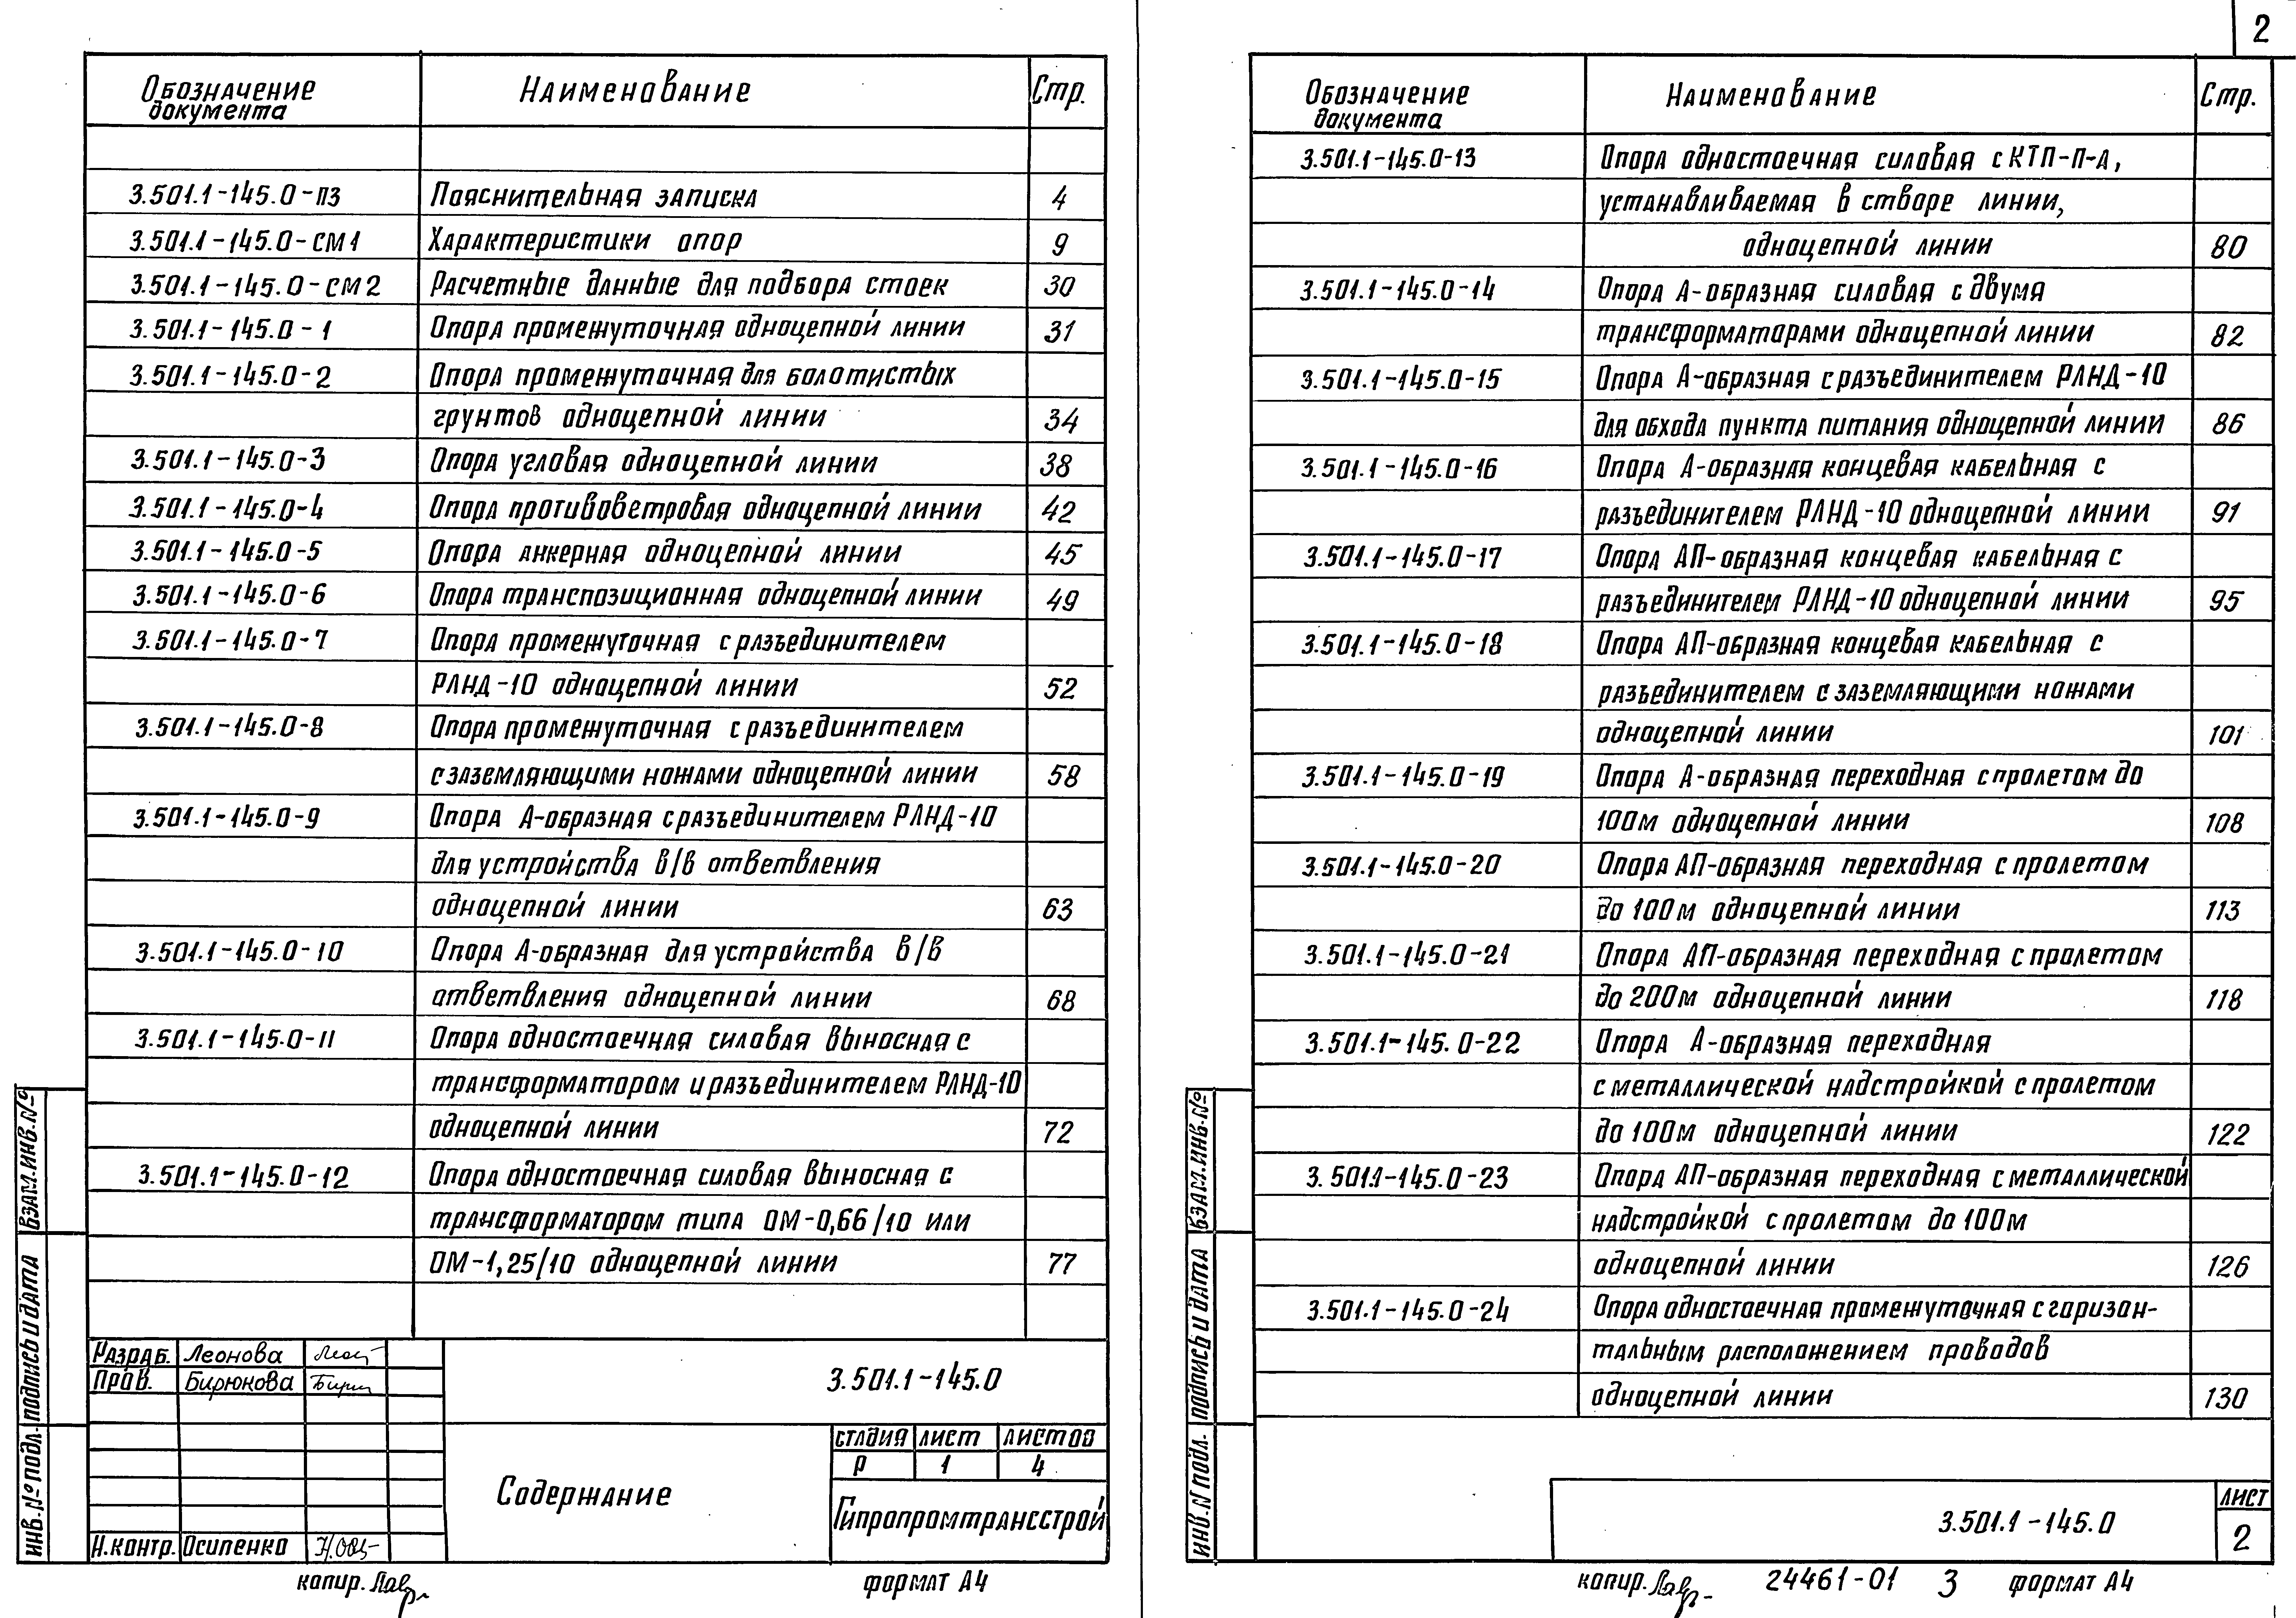 Обозначение документа Наименование Стр.
3.501.1-145.0-ПЗ Пояснительная записка 4
3.501.1-145.0-СМ1 Характеристики опор 9
3.501.1-145.0-СМ2 Расчетные данные для подбора стоек 30
3.501.1-145.0-1 Опора промежуточная одноцепной линии 31
3.501.1-145.0-2 Опора промежуточная для болотистых
грунтов одноцепной линии 34
3.501.1-145.0-3 Опора угловая одноцепной линии 38
3.501.1-145.0-4 Опора противоветровая одноцепной линии 42
3.501.1-145.0-5 Опора анкерная одноцепной линии 45
3.501.1-145.0-6 Опора транспозиционная одноцепной линии 49
3.501.1-145.0-7 Опора промежуточная с разъединителем
РЛНД-10 одноцепной линии 52
3.501.1-145.0-8 Опора промежуточная с разъединителем
с заземляющими ножами одноцепной линии 58
3.501.1-145.0-9 Опора А-образная с разъединителем РЛНД-10
для устройства в/в ответвления
одноцепной линии 63
3.501.1-145.0-10 Опора А-образная для устройства в/в
ответвления одноцепной линии 68
3.501.1-145.0-11 Опора одностоечная силовая выносная с
трансформатором и разъединителем РЛНД-10
одноцепной линии 72
3.501.1-145.0-12 Опора одностоечная силовая выносная с
трансформатором типа ОМ-0,66/10 или
ОМ-1,25/10 одноцепной линии 77
Взам.инв.№
Подпись и дата
Инв.№ подл.
Разраб. Леонова
Пров. Бирюкова
Н.контр. Осипенко
3.501.1-145.0
Содержание
Стадия Лист Листов
Р 1 4
Гипропромтрансстрой
копир. формат А4
2
Обозначение документа Наименование Стр.
3.501.1-145.0-13 Опора одностоечная силовая с КТП-П-А,
устанавливаемая в створе линии,
одноцепной линии 80
3.501.1-145.0-14 Опора А-образная силовая с двумя
трансформаторами одноцепной линии 82
3.501.1-145.0-15 Опора А-образная с разъединителем РЛНД-10
для обхода пункта питания одноцепной линии 86
3.501.1-145.0-16 Опора А-образная концевая кабельная с
разъединителем РЛНД-10 одноцепной линии 91
3.501.1-145.0-17 Опора АП-образная концевая кабельная с
разъединителем РЛНД-10 одноцепной линии 95
3.501.1-145.0-18 Опора АП-образная концевая кабельная с
разъединителем с заземляющими ножами
одноцепной линии 101
3.501.1-145.0-19 Опора А-образная переходная с пролетом до
100м одноцепной линии 108
3.501.1-145.0-20 Опора АП-образная переходная с пролетом
до 100м одноцепной линии 113
3.501.1-145.0-21 Опора АП-образная переходная с пролетом
до 200м одноцепной линии 118
3.501.1-145.0-22 Опора А-образная переходная
с металлической надстройкой с пролетом
до 100м одноцепной линии 122
3.501.1-145.0-23 Опора АП-образная переходная с металлической
надстройкой с пролетом до 100м
одноцепной линии 126
3.501.1-145.0-24 Опора одностоечная промежуточная с горизон-
тальным расположением проводов
одноцепной линии 130
Взам.инв.№
Подпись и дата
Инв.N подл.
3.501.1-145.0
Лист
2
копир. 24461-01 3 формат А4